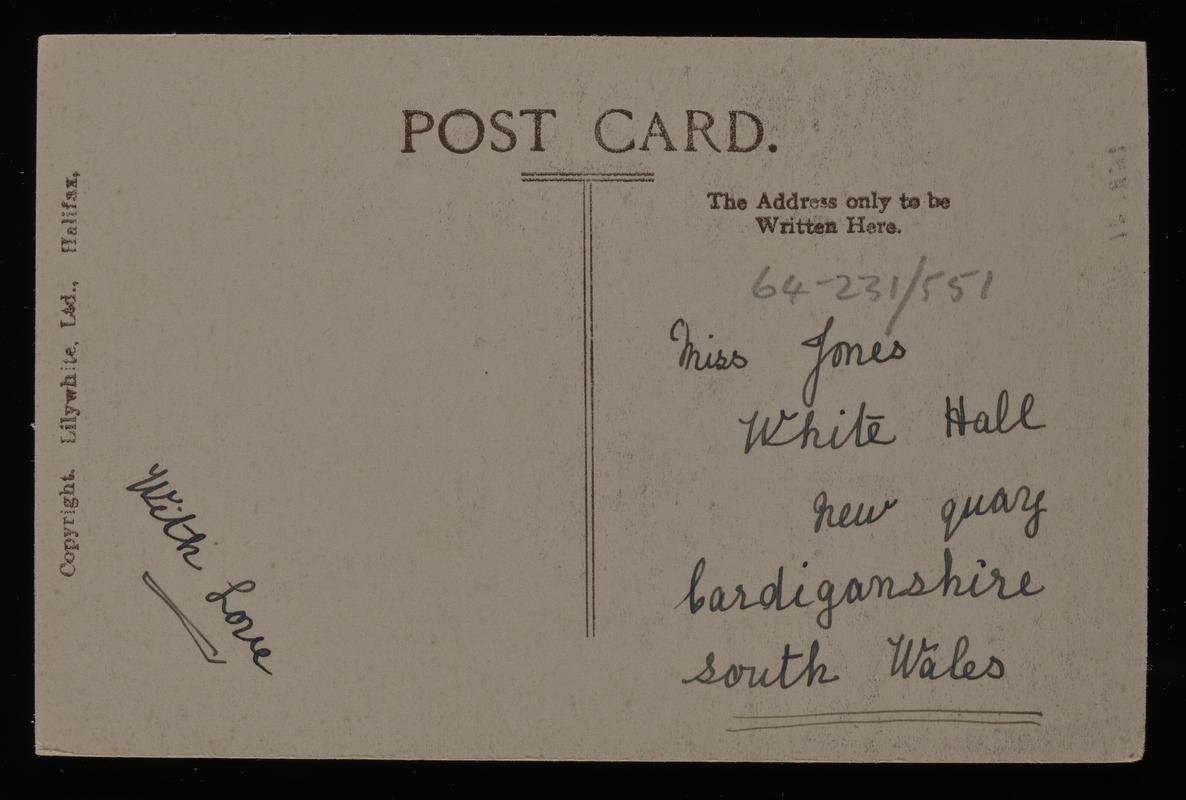 POST CARD.
The Address only to be
Written Here.
64-231/551
Miss Jones
White Hall
new quay
Cardiganshire
south Wales
With Love
Copyright. Lilywhite, Ltd., Halifax,